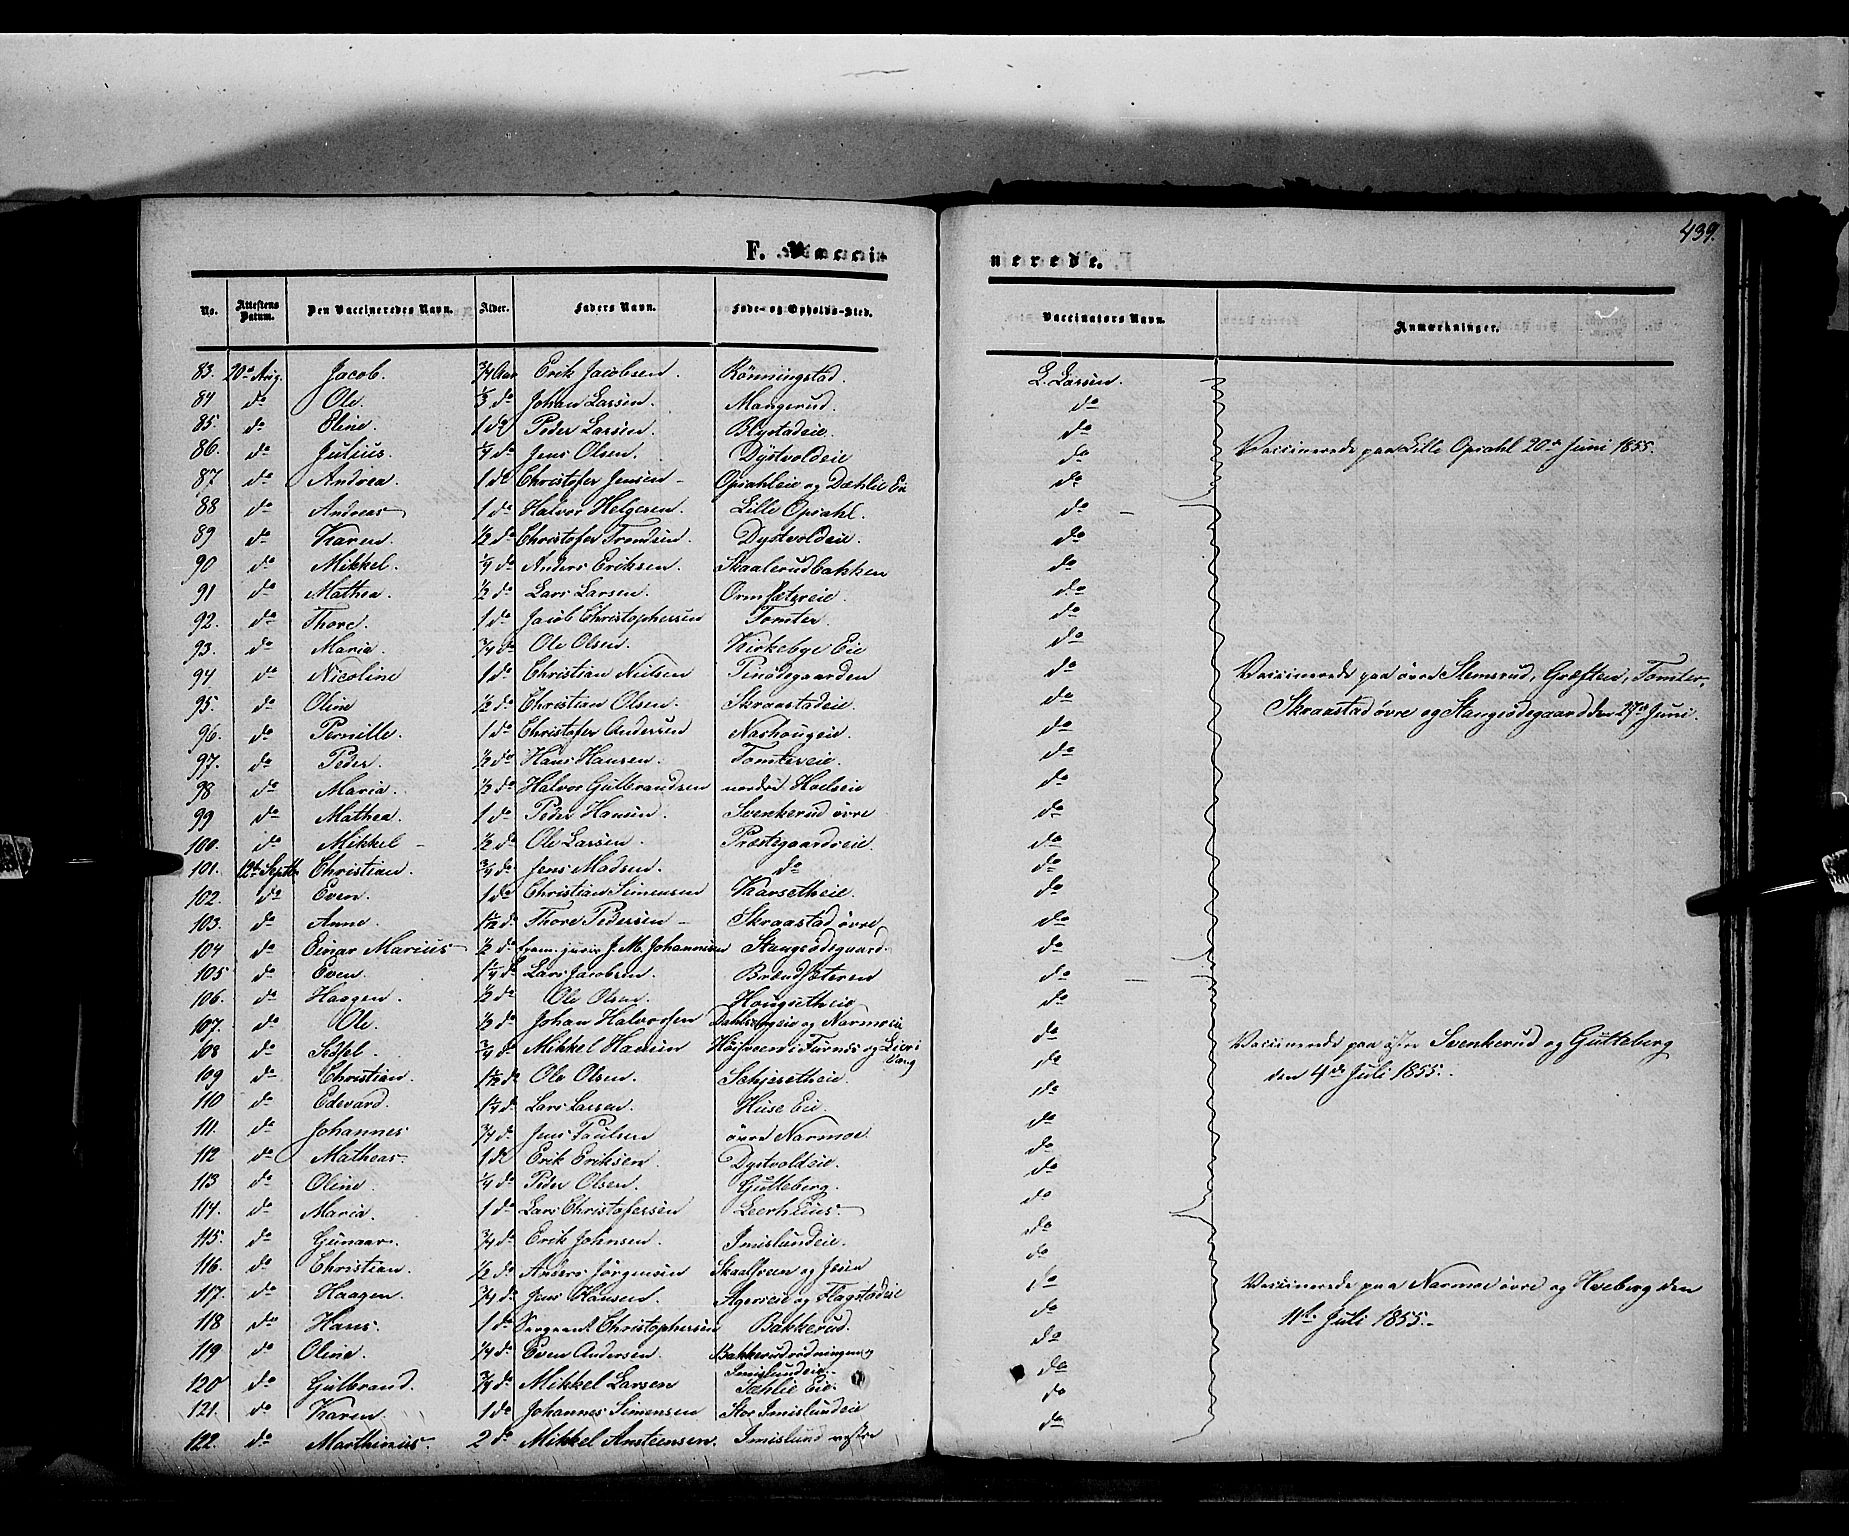 439.
F. Vacci-
nerede.
No. Attestens Datum. Den Vaccineredes Navn. Alder. Faders Navn. Føde- og Opholds-Sted. Vaccinators Navn. Anmærkninger.
83. 20de Aug. Jacob. 3/4 Aar Erik Jacobsen. Rönningstad. L. Larsen.
84 do Ole. 1/3 do Johan Larsen. Mangerud. do
85. do Eline. 1 do Peder Larsen. Blystadeie. do
86. do Julius. 1/4 do Jens Olsen. Dystvoldeie do Vaccinerede paa Lille Opsahl 20de Juni 1855.
87 do Andrea. 1 do Christofer Jensen Opsahleie og Dæhlie Ei do
88 do Andreas 1 do Halvor Helgesen. Lille Opsahl. do
89 do Karen. 1/2 do Christofer Trondsen. Dystvoldeie. do
90 do Mikkel. 1/4 do Anders Eriksen. Skaalerudbakken do
91 do Mathea. 1/2 do Lars Larsen. Ormsætereie. do
92. do Thore. 1 do Jacob Christophersen Tomter. do
93. do Maria. 3/4 do Ole Olsen. Kirkebye Eie do
94 do Nicoline 1 do Christian Nielsen Pinödegaarden do Vaccinerede paa övre Stensrud, Græften, Tomter,
95. do Oline 1/2 do Christian Olsen. Skraastadeie. do Skraastad övre og Stangeödegaard den 27de Juni.
96. do Pernille. 1 do Christofer Andersen Nashougeie. do
97. do Peder. 1/2 do Hans Hansen. Tomtereie. do
98 do Maria. 1/2 do Halvor Gulbrandsen nordre Hoelseie do
99 do Mathea. 1 do Peder Hansen. Svenkerud övre do
100. do Mikkel 1/2 do Ole Larsen. Præstegaardseie. do
101. 12te Septbr Christian. 3/4 do Jens Madsen. do do
102. do Even. 1 do Christian Simensen Karsetheie. do
103. do Anne 1 1/2 do Thore Pedersen Skraastad övre do
104 do Einar Marius 1/2 do J. M. Johannesen Stangeödegaard. do
105 do Even. 1 1/4 do Lars Jacobsen. Brændsæteren do
106. do Haagen. 1/2 do Ole Olsen. Hougsetheie do
107. do Ole. 1/2 do Johan Halvorsen Dahlsengeie og Narmoeie do
108 do Sidsel. 3/4 do Mikkel Hansen Höisveen i Furnes og Lier i Vang do Vaccinerede paa östre Svenkerud og Gutteberg
109 do Christian. 1 1/2 do Ole Olsen. Sæhjesetheie. do den 4de Juli 1855.
110 do Edevard. 1 1/4 do Lars Larsen. Huse Eie do
111. do Johannes 3/4 do Jens Paulsen övre Narmoe. do
112 do Matheas. 1 do Erik Eriksen. Dystvoldeie. do
113 do Oline. 1/4 do Peder Olsen. Gutteberg. do
114. do Maria. 1 do Lars Christofersen Leerhuus do
115. do Gunaar. 3/4 do Erik Johnsen. Imislundeie. do
116. do Christian. 1/2 do Anders Jörgensen Skaalsveen og do
117. do Haagen. 3/4 do Jens Hansen. Agerseie og Flagstadeie do Vaccinerede paa Narmoe övre og Hveberg den
118 do Hans. 1 do Sergeant Christophersen Bakkerud. do 11te Juli 1855.
119 do Oline. 1/4 do Even Andersen. Bakkerudrödningen og Imislundeie. do
120 do Gulbrand. 3/4 do Mikkel Larsen Sæhlie Eie. do
121. do Karen. 1 do Johannes Simensen Stor Imislundeie do
122. do Marthinius. 2 do Mikkel Ansteensen. Imislund vestre do